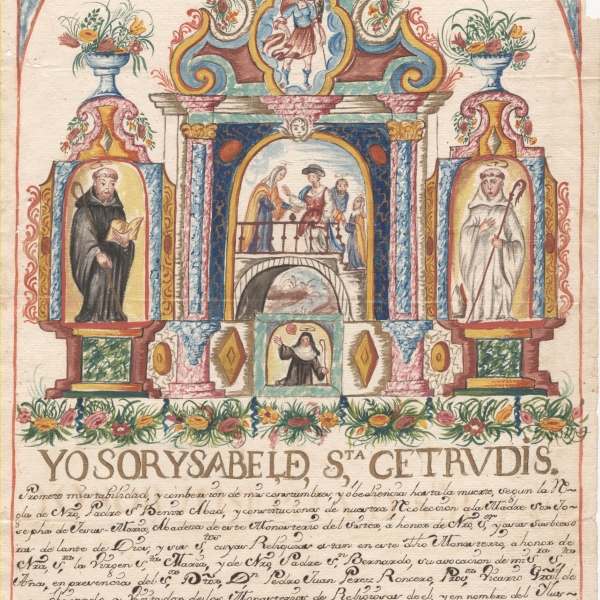 YO SOR YSABEL, D, S,TA GETRVDIS.
Prometo mi estabilidad, y combersion de mis costumbres, y obediencia hasta la muerte, segun la R-
gla de Nro, Padre Sn Benito Abad, y constituciones de nuestra Recoleccion, a la Madre Sor Jo-
sepha de Jesus-Maria, Abadeza de este Monasterio del Sister, a honor de Nro, Sr, y a sus
delante de Dios, y sus Stos cuyas Reliquias estan en este dho Monasterio, a honor de
Nra, Sa, la Virgen Sta Maria, y de Nro, Padre Sn Bernardo, su avocacion de mi Sa Sta
Ana, en presencia del Sr Dor, Dn Pedro Juan Perez Roncero, Vicario Gral, de
y Visitador de los Monasterios de Religiosas de el, y en nombre del